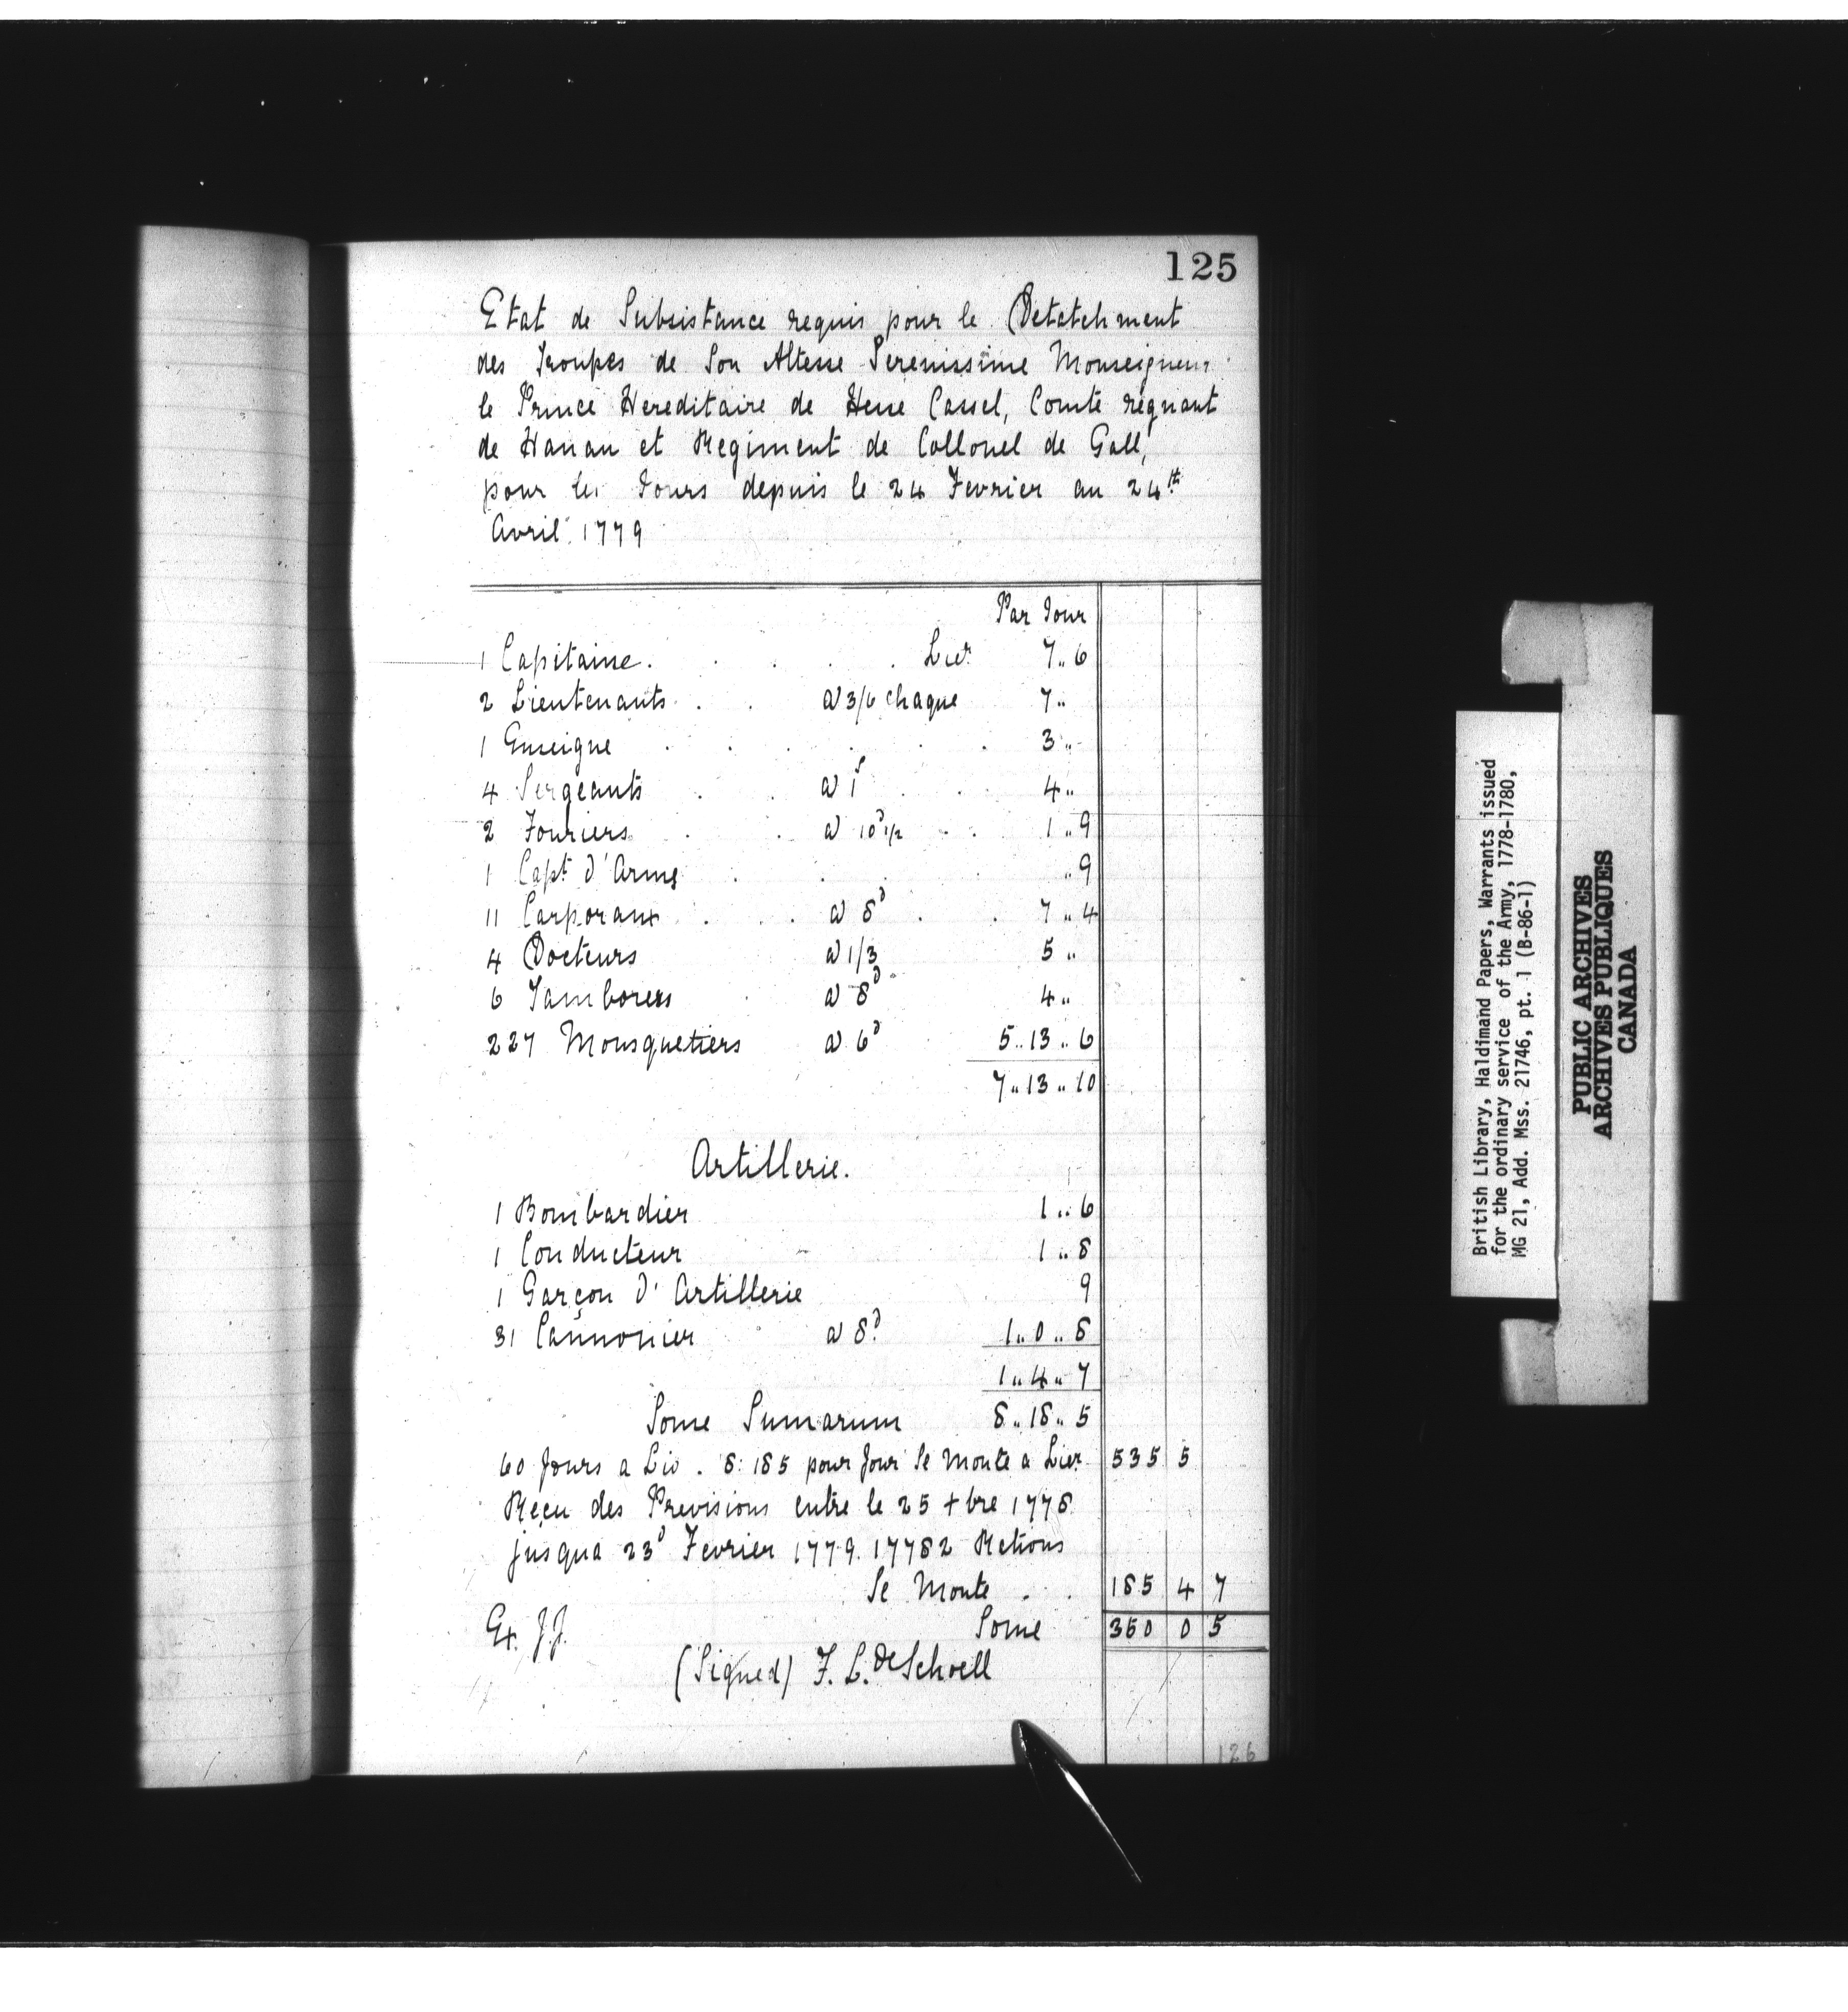 125
Etat de Subsistance requis pour le Detatchment
des Troupes de Son Altesse Serenissime Monseigneur
le Prince Hereditaire de Hesse Cassel, Comte regnant
de Hanau et Regiment de Collonel de Gall,
pour les Jours depuis le 24 Fevrier au 24th
Avril 1779
Par Jour
1 Capitaine . . . . . 7.. 6
2 Lieutenants . . a 3/6 chaque 7..
1 Enseigne . . . . . . 3..
4 Sergeants . . a 1s . . 4..
2 Fouriers . . a 10d 1/2 . . 1.. 9
1 Capt d'Arms . . . .. 9
11 Carporaux . . a 8d . . 7.. 4
4 Docteurs a 1/3 5..
6 Tamborers . a 8d 4..
227 Mousquetiers a 6d 5.. 13.. 6
7.. 13.. 10
Artillerie.
1 Bombardier 1.. 6
1 Conducteur 1.. 8
1 Garçon d'Artillerie 9
31 Cannonier a 8d 1.. 0.. 8
1.. 4.. 7
Some Sumarum 8.. 18.. 5
60 Jours a Liv. 8: 185 pour Jour Se Monte a 535 5
Reçu des Previsions entre le 25 +bre 1778
jusqua 23d Fevrier 1779. 17782 Retions
Se Monte . . 185 4 7
Ex. J.J. Some 350 0 5
(Signed) F. L. De Schoell
126
British Library, Haldimand Papers, Warrants issued
for the ordinary service of the Army, 1778-1780,
MG 21, Add. Mss. 21746, pt. 1 (B-86-1)
PUBLIC ARCHIVES
ARCHIVES PUBLIQUES
CANADA